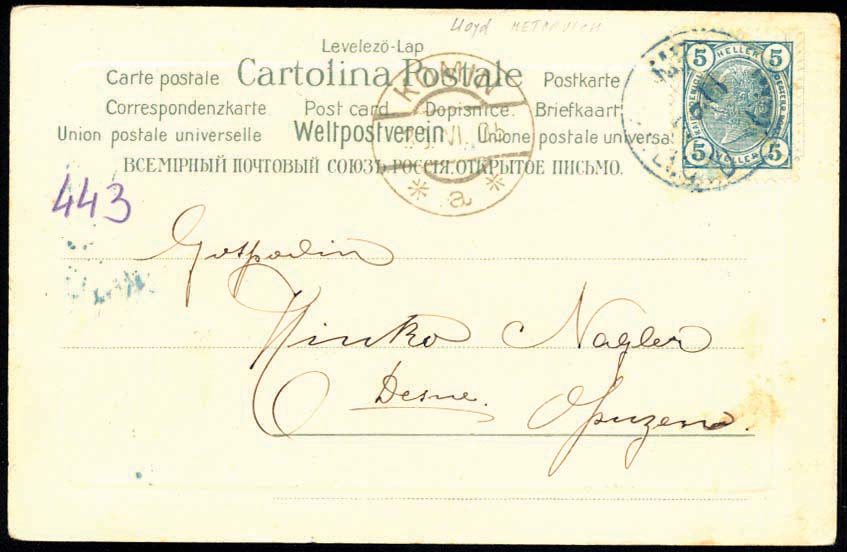 Lloyd METKOVICH
Levelező-Lap
Carte postale Cartolina Postale Postkarte
Correspondenzkarte Post card Dopisnice. Briefkaart
Union postale universelle Weltpostverein Unione postale universa
ВСЕМІРНЫЙ ПОЧТОВЫЙ СОЮЗЪ РОССІЯ. ОТКРЫТОЕ ПИСЬМО.
5 HELLER 5
5 HELLER 5
VI
* a *
443
Gospodin
Vinko Nagler
Desne. Opuzen.